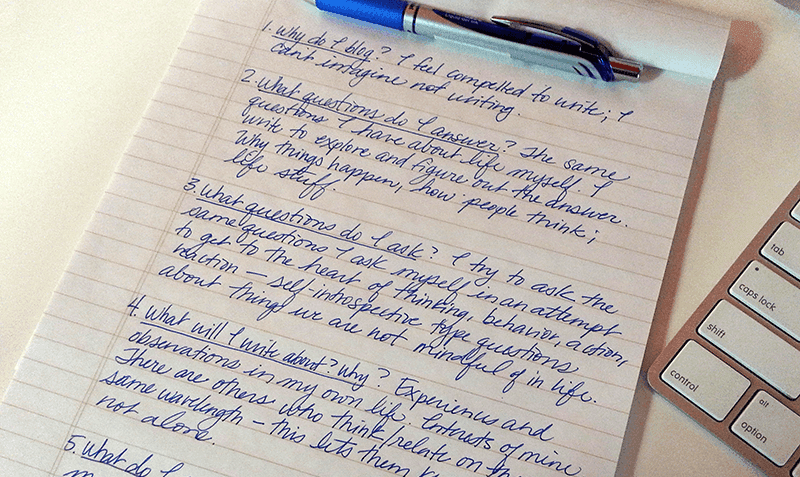 1. Why do I blog? I feel compelled to write; I
can't imagine not writing.
2. What questions do I answer? The same
questions I have about life myself. I
write to explore and figure out the answer.
Why things happen, how people think;
life stuff.
3. What questions do I ask? I try to ask the
same questions I ask myself in an attempt
to get to the heart of thinking, behavior, action,
reaction – self-introspective type questions
about things we are not mindful of in life.
4. What will I write about? Why? Experiences and
observations in my own life. of mine
There are others who think/relate on the
same wavelength – this lets them
not alone.
5. What do I
tab
caps lock
shift
control
alt
option